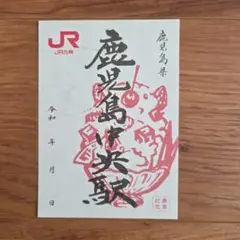 鹿児島県
鹿児島中央駅
JR
JR九州
令和 年 月 日